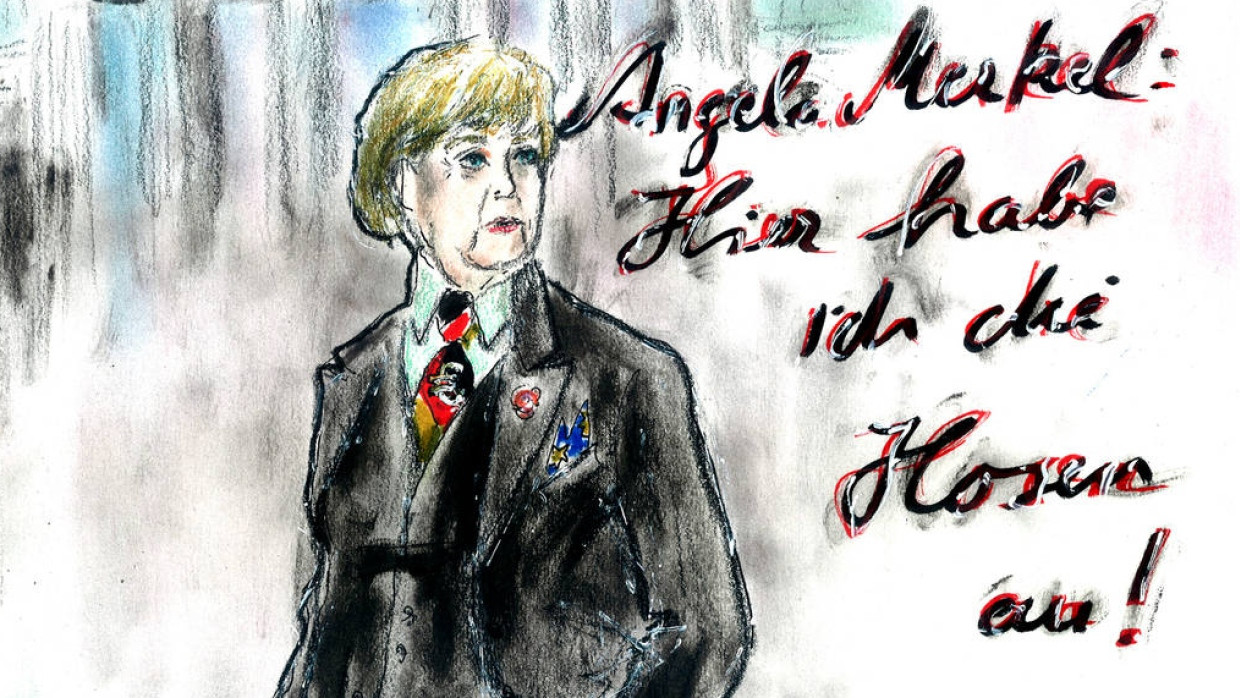 Angela Merkel:
Hier habe
ich die
Hosen
an!